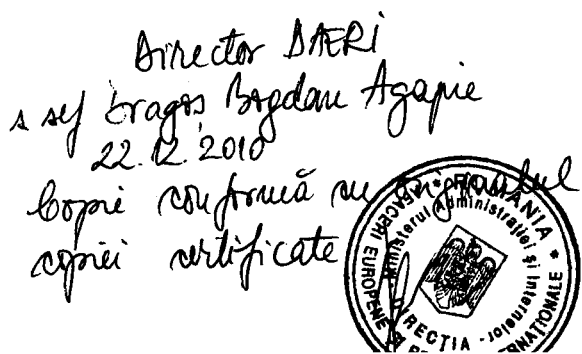 Director DAERI
s sef Dragoș Bogdan Agapie
22.12.2010
Copie conformă cu originalul
copiei certificate
* ROMÂNIA *
Ministerul Administrației și Internelor
AFACERI EUROPENE
DIRECȚIA